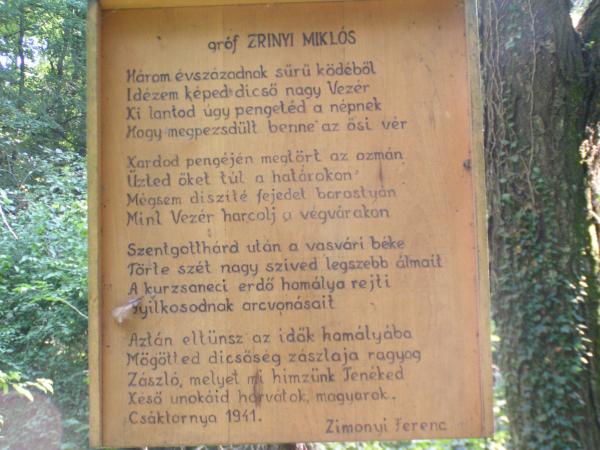 gróf ZRINYI MIKLÓS
Három évszázadnak sűrű ködéből
Idézem képed dicső nagy Vezér
Ki lantod úgy pengetéd a népnek
Hogy megpezsdült benne az ősi vér
Kardod pengéjén megtört az ozmán
Űzted őket túl a határokon
Mégsem diszité fejedet borostyán
Mint Vezér harcolj a végvárakon
Szentgotthárd után a vasvári béke
Törte szét nagy szived legszebb álmait
A kurzsaneci erdő homálya rejti
Gyilkosodnak arcvonásait
Aztán eltünsz az idők homályába
Mögötted dicsőség zászlaja ragyog
Zászló, melyet mi himzünk Tenéked
Késő unokáid horvátok, magyarok.
Csáktornya 1941.
Zimonyi Ferenc